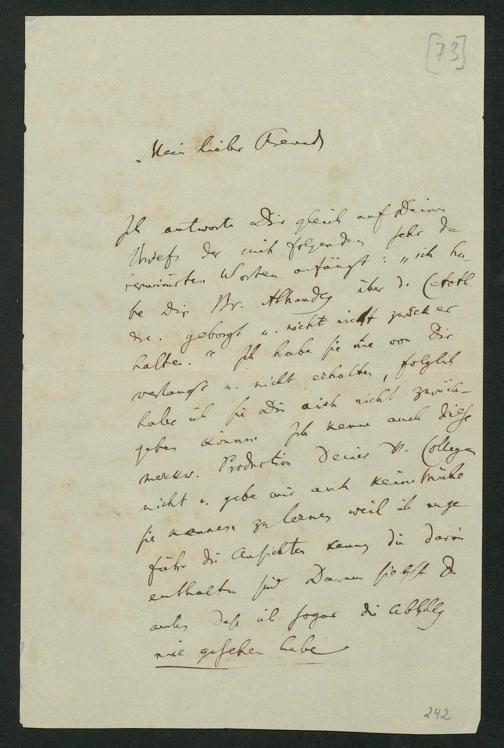 [73]
Mein lieber Freund
Ich antworte Dir gleich auf Deinen
Brief der mit folgenden sehr
Worten anfängt: „ich ha-
be Dir Br. Abhandlg über d.
geborgt u. nicht zurück er
halten." Ich habe sie nie von Dir
verlangt u. nicht erhalten, folglich
habe ich sie Dir auch nicht zurück-
geben können. Ich kenne auch diese
merkw. Production Deines H. Collegen
nicht u. gebe mir auch keine Mühe
sie kennen zu lernen weil ich unge
fähr die Ansichten kenne die darin
enthalten sind. Daraus siehst Du
daß ich sogar die Abhdlg
nie gesehen habe
242